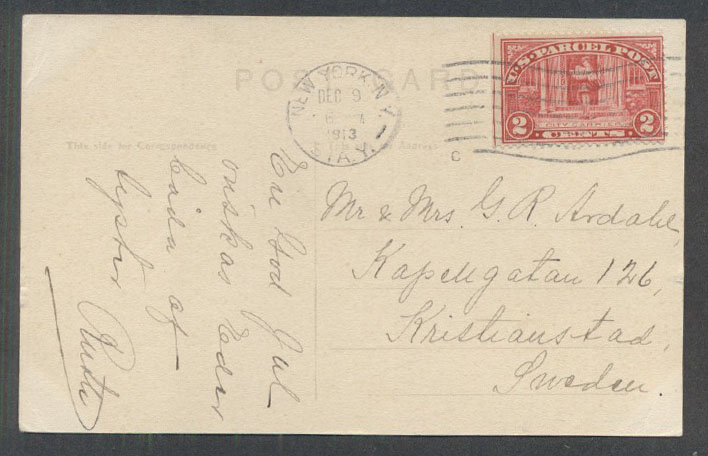 POST CARD
NEW YORK, N.Y.
DEC 9
6
1913
STA. Y.
U.S. PARCEL POST
2 2
CITY CARRIER
CENTS
C
This side for Correspondence
Address
En God Jul
önskas Eder
båda af
Syster
Mr & Mrs. G. R. Ardahl,
Kapellgatan 126,
Kristianstad,
Sweden.